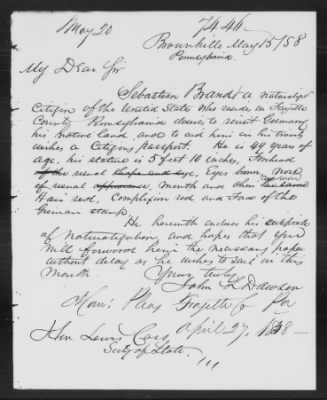 May 20
7446
Brownsville May 15/58
Pennsylvania
My Dear Sir
Sebastian Brandt a naturalized
Citizen of the United State who resides in Fayette
County Pennsylvania desires to revisit Germany
his native land, and to aid him in his transit
wishes a Citizens passport. He is 49 years of
age, his stature is 5 feet 10 inches, Forehead
usual Eyes brown, Nose
of usual appearance, Mouth and Chin
Hair red, Complexion red and Face of the
German stamp.
He herewith encloses his certificate
of Naturalization, and hopes that you
will forward him the necessary paper
without delay as he wishes to sail in this
Month.
Yours truly
John L Dawson
Com: Pleas Fayette Co Pa
Hon Lewis Cass April 27, 1838 —
Secty of State.